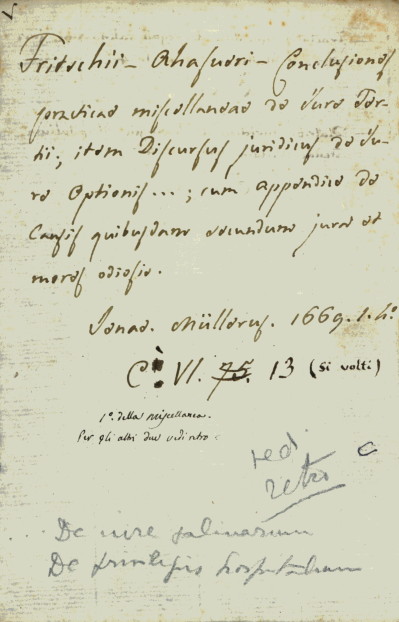 Fritschii - Ahasueri - Conclusiones
practicae miscellaneae de Jure Ter-
tii; item Discursus juridicus de Ju-
re Optionis...; cum appendice de
Causis quibusdam secundum jura et
mores odiosis.
Jenae. Müllerus. 1669. 1. 4.º
C: VI. 75. 13 (si volti)
1º. della miscellanea.
Per gli altri due vedi retro
vedi
retro
De iure salinarum
De privilegiis hospitalium